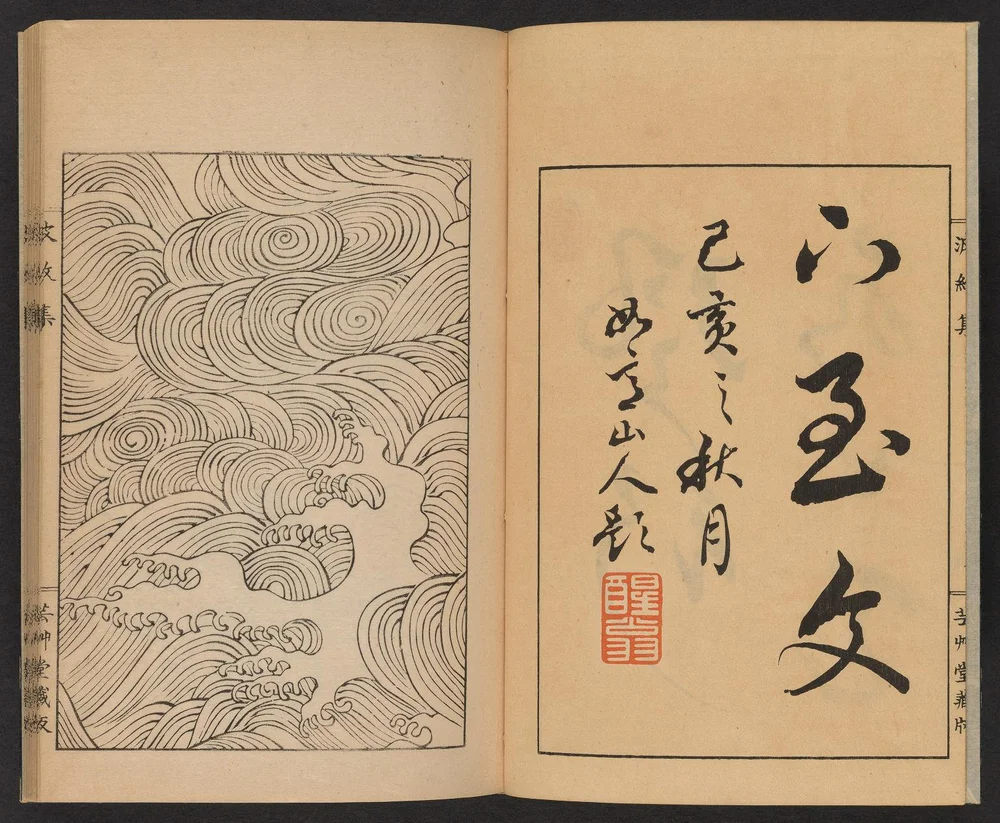 波紋集
芸艸堂藏版
下至文
己亥之秋月
如意山人題
醒翁
波紋集
芸艸堂藏版